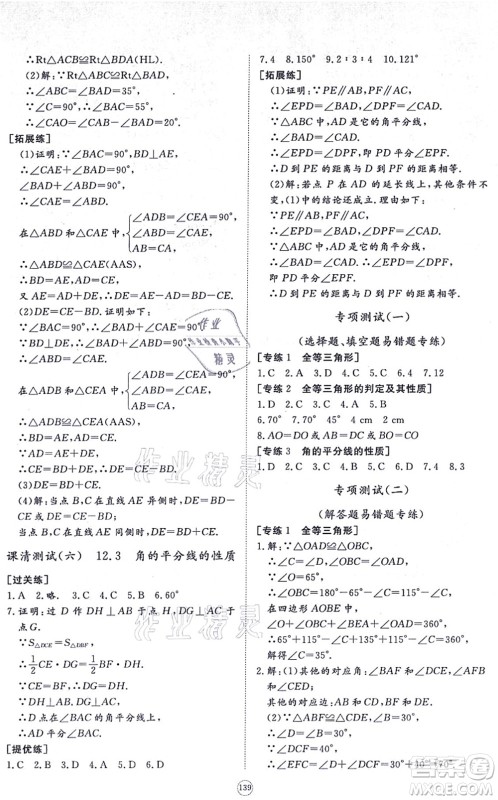 ∴Rt△ACB≌Rt△BDA(HL).
(2)解:∵Rt△ACB≌Rt△BDA,
∴∠ABC=∠BAD=35°,
∵∠C=90°,∴∠BAC=55°,
∴∠CAO=∠CAB-∠BAD=20°.
[拓展练]
(1)证明:∵∠BAC=90°,BD⊥AE,
∴∠CAE+∠BAD=90°,
∠BAD+∠ABD=90°,
∴∠CAE=∠ABD.
在△ADB和△CAE中,{∠ADB=∠CEA=90°,
∠ABD=∠CAE,
AB=CA,
∴△ABD≌△CAE(AAS),
∴BD=AE,AD=CE,
又AE=AD+DE,∴BD=DE+CE.
(2)BD=DE-CE.证明如下:
∵∠BAC=90°,BD⊥AE,
∴∠BAD+∠CAE=90°,
∠BAD+∠ABD=90°,∴∠CAE=∠ABD.
在△ADB和△CEA中,{∠ADB=∠CEA=90°,
∠ABD=∠CAE,
AB=CA,
∴△ADB≌△CEA,∴BD=AE,AD=CE,
∵DE=AD+AE,∴DE=CE+BD,
∴BD=DE-CE.
(3)同(2)的方法得出,BD=DE-CE.
(4)归纳:当点B,C在直线AE异侧时,BD=DE+CE;当点B,C在直线AE同侧时,BD=DE-CE.
课清测试(六) 12.3 角的平分线的性质
[过关练]
1.A 2.4 3.B 4.B 5.B 6.60°
7.证明:作DH⊥AB于点H,作DG⊥AC于点G.如图所示:
∵S△DCE=S△DBF,
∴½CE·DG=½BF·DH,
∵CE=BF,∴DG=DH,
∵DH⊥AB,DG⊥AC,
∴点D在∠BAC的平分线上,
∴AD平分∠BAC.
[提优练]
1.C 2.C 3.C 4.A 5.B 6.A
7.4 8.150° 9.2∶3∶4 10.121°
[拓展练]
(1)证明:∵PE∥AB,PF∥AC,
∴∠EPD=∠BAD,∠DPF=∠CAD.
∵△ABC中,AD是它的角平分线,
∴∠BAD=∠CAD,
∴∠EPD=∠DPF,即DP平分∠EPF,
∴D到PE的距离与D到PF的距离相等.
(2)解:若点P在AD的延长线上,其他条件不变,(1)中的结论还成立.理由如下:
∵PE∥AB,PF∥AC,
∴∠EPD=∠BAD,∠DPF=∠CAD.
∵△ABC中,AD是它的角平分线,
∴∠BAD=∠CAD,
∴∠EPD=∠DPF,即DP平分∠EPF,
∴D到PE的距离与D到PF的距离相等.
专项测试(一)
(选择题、填空题易错题专练)
[专练1 全等三角形]
1.C 2.A 3.D 4.A 5.130° 6.4 7.12
[专练2 全等三角形的判定及其性质]
1.D 2.C 3.A 4.B 5.D
6.70°或20° 7.45° 8.4 cm 9.2 cm
[专练3 角的平分线的性质]
1.D 2.C 3.D 4.D 5.D 6.B 7.4 8.3
专项测试(二)
(解答题易错题专练)
[专练1 全等三角形]
1.解:∵△OAD≌△OBC,
∴∠C=∠D,∠OBC=∠OAD,
∵∠O=65°,
∴∠OBC=180°-65°-∠C=115°-∠C,
在四边形AOBE中,
∵∠O+∠OBC+∠BEA+∠OAD=360°,
∴65°+115°-∠C+135°+115°-∠C=360°,
解得∠C=35°.
2.解:(1)其他的对应角:∠BAF和∠DCE,∠ABF和∠CDE.
(2)∵∠C和∠A是对应角,∠A=40°,
∴∠C=∠A=40°.
∵∠D=∠B=30°,
∴∠EFC=∠DEF+∠D=40°+30°=70°.
139
作业精灵
作业精灵